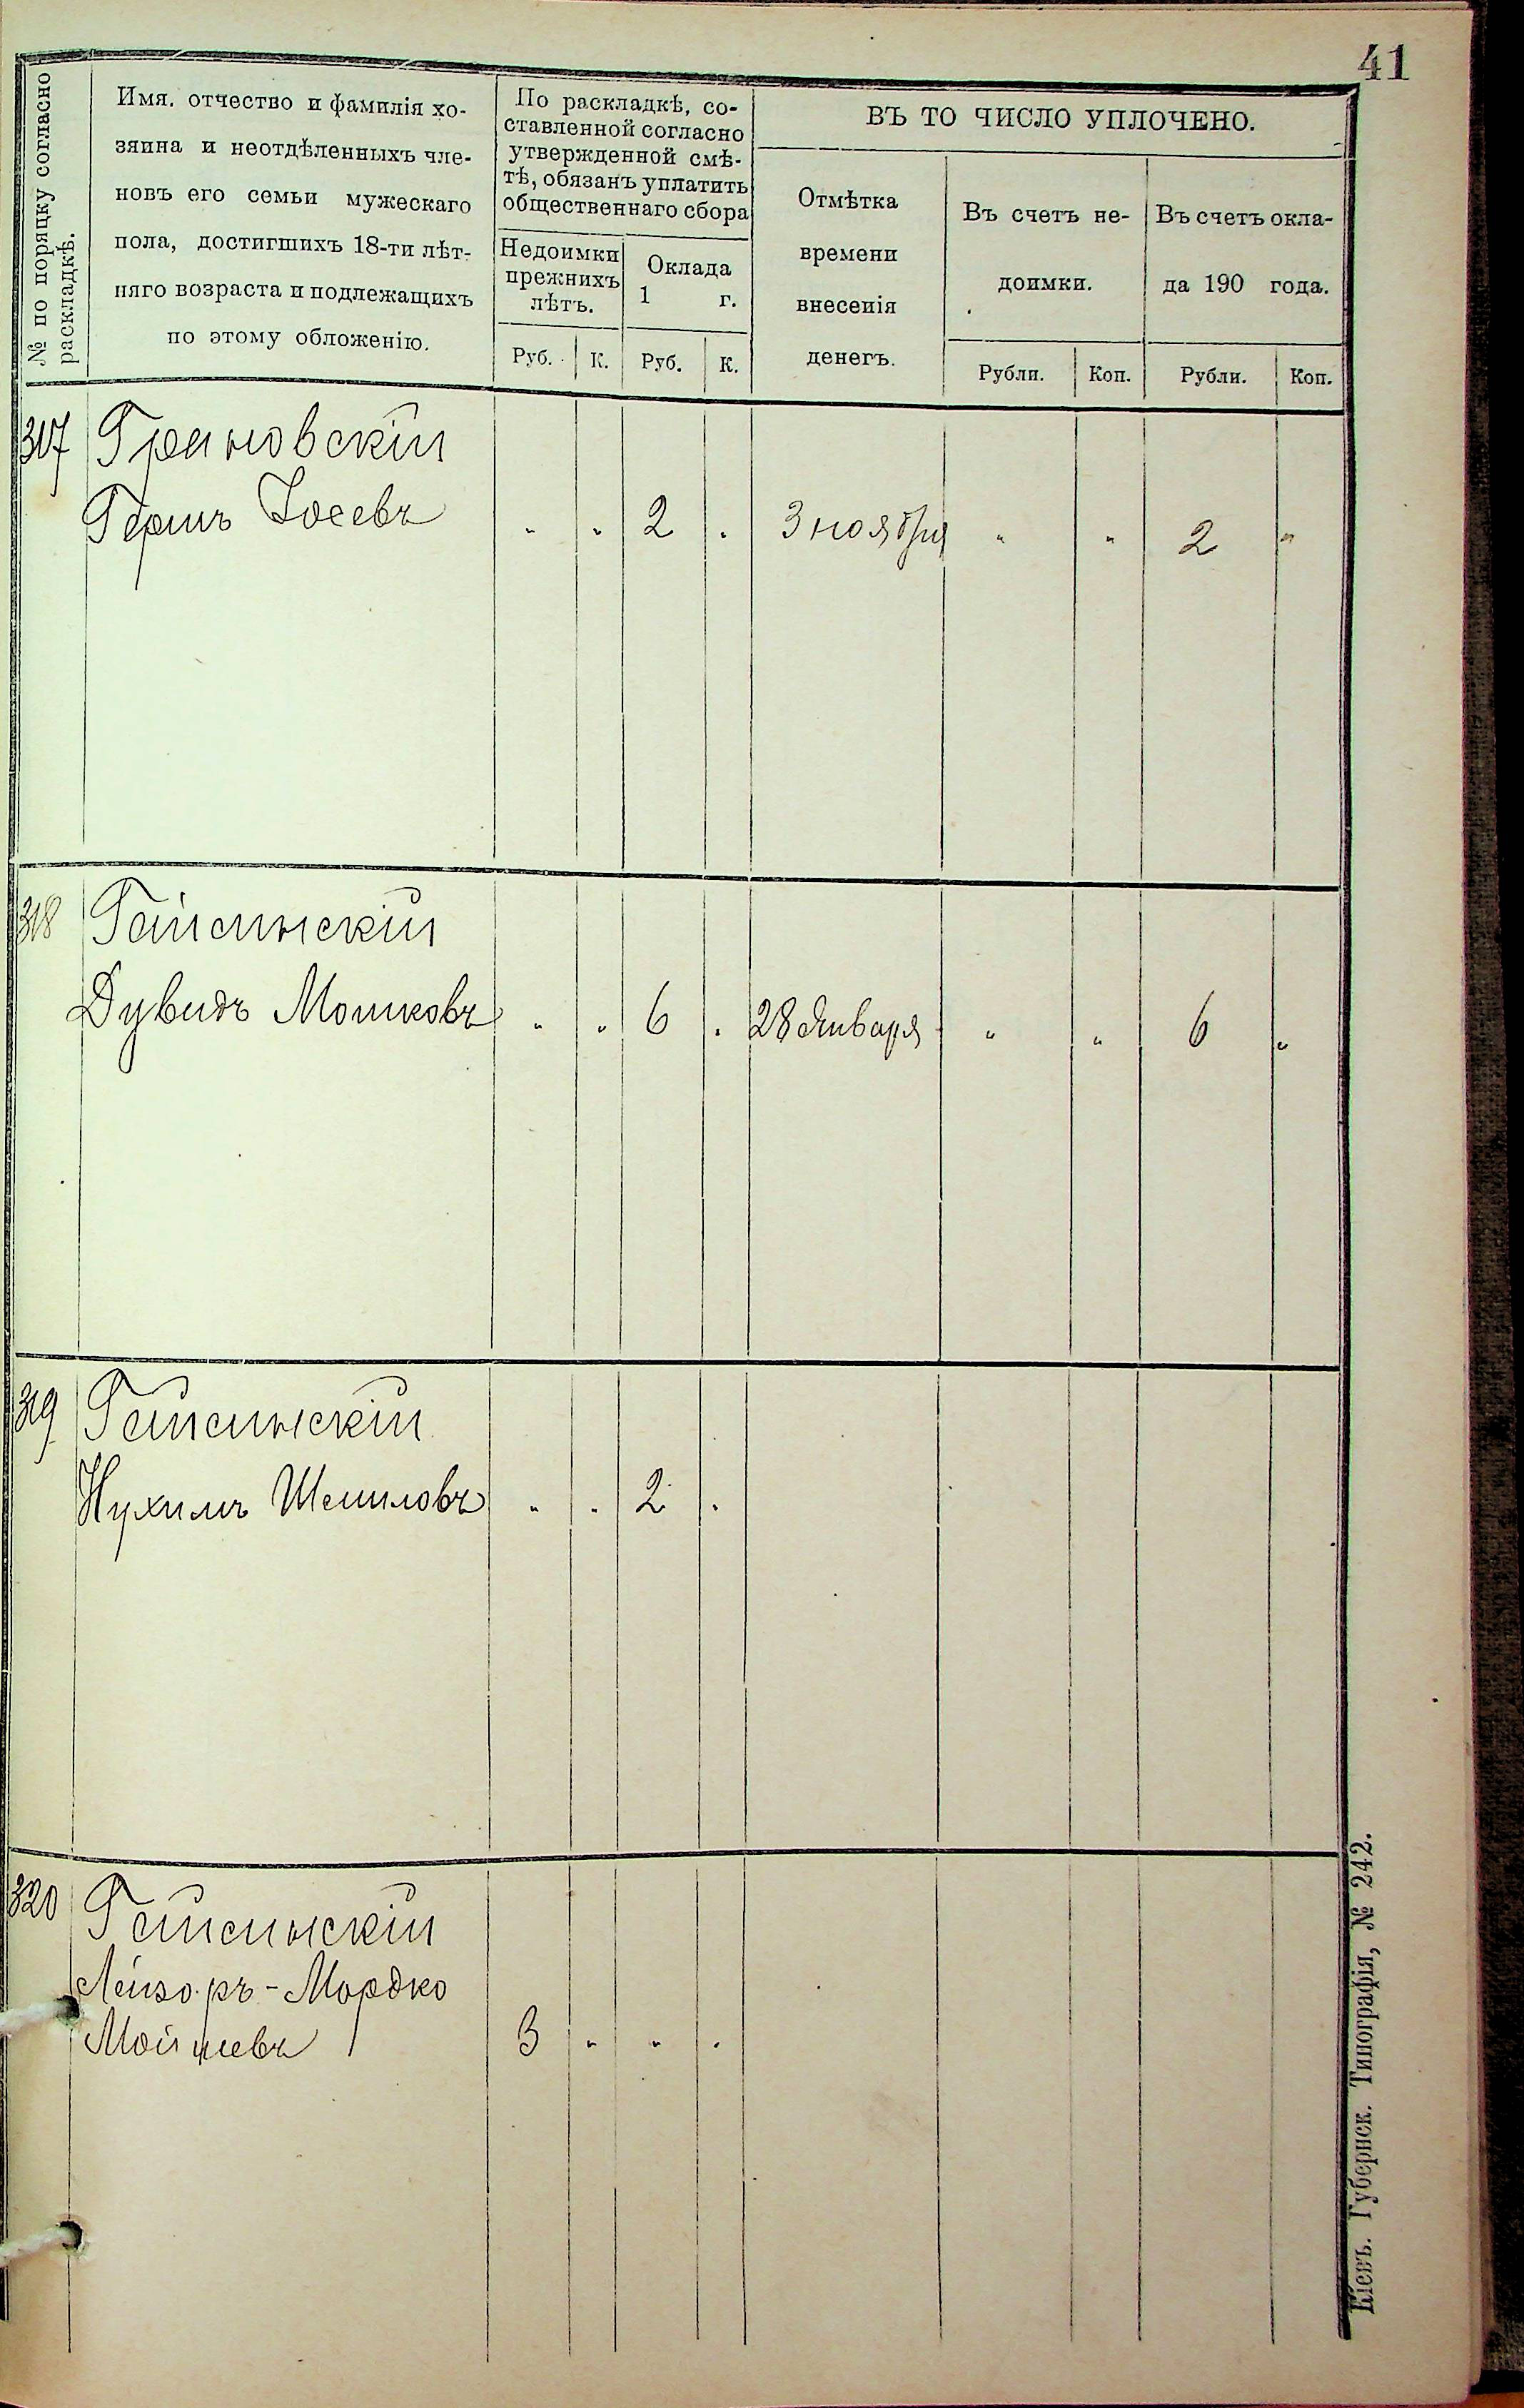 41
№ по порядку согласно
раскладкѣ.
Имя. отчество и фамилія хо-
зяина и неотдѣленныхъ чле-
новъ его семьи мужескаго
пола, достигшихъ 18-ти лѣт-
няго возраста и подлежащихъ
по этому обложенію.
По раскладкѣ, со-
ставленной согласно
утвержденной смѣ-
тѣ, обязанъ уплатить
общественнаго сбора
Недоимки
прежнихъ
лѣтъ.
Оклада
1 г.
Руб. К. Руб. К.
ВЪ ТО ЧИСЛО УПЛОЧЕНО.
Отмѣтка
времени
внесенія
денегъ.
Въ счетъ не-
доимки.
Въ счетъ окла-
да 190 года.
Рубли. Коп. Рубли. Коп.
317 Грановскій
Гершъ Іосевъ " " 2 . 3 ноября " " 2 "
318 Гайсинскій
Дувидъ Мошковъ " " 6 . 28 Января " " 6 "
319 Гайсинскій
Нухимъ Шмиловъ " " 2 .
320 Гайсинскій
Лейзоръ-Мордко
Мойшевъ 3 " " .
Кіевъ. Губернск. Типографія, № 242.